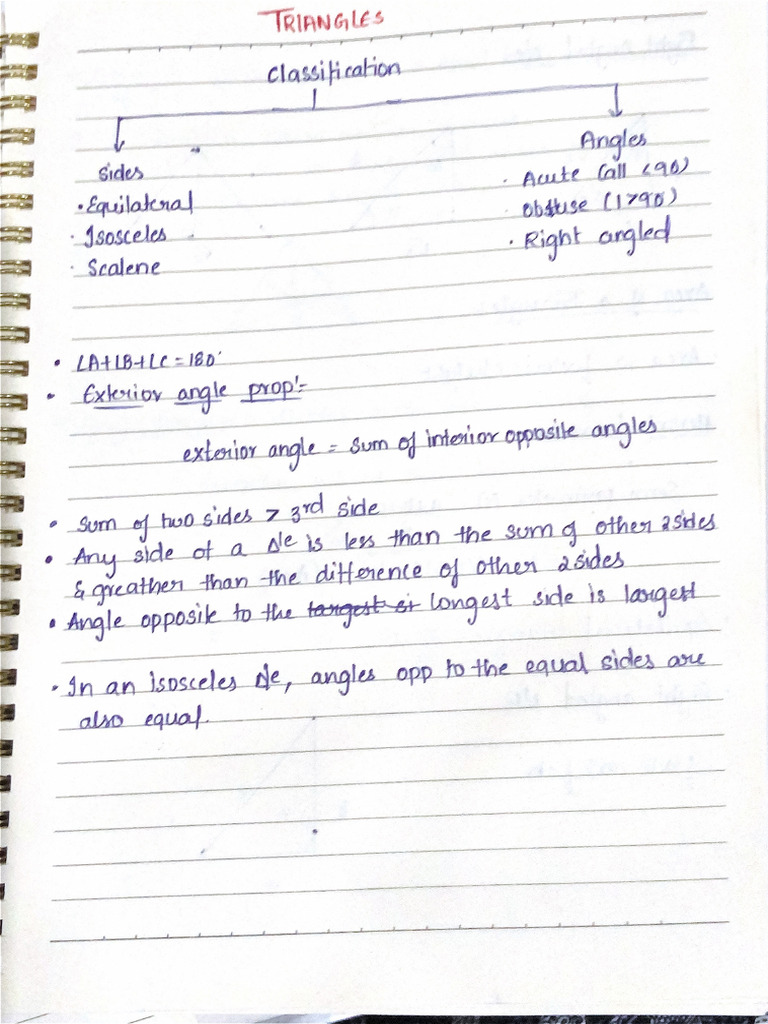 TRIANGLES
Classification
Sides
• Equilateral
• Isosceles
• Scalene
Angles
• Acute (all <90)
• Obtuse (1>90)
• Right angled
• ∠A+∠B+∠C=180°
• Exterior angle prop:-
exterior angle = sum of interior opposite angles
• Sum of two sides > 3rd side
• Any side of a Δle is less than the sum of other 2 sides
& greather than the difference of other 2 sides
• Angle opposite to the ~~largest si~~ longest side is largest
• In an isosceles Δle, angles opp to the equal sides are
also equal.